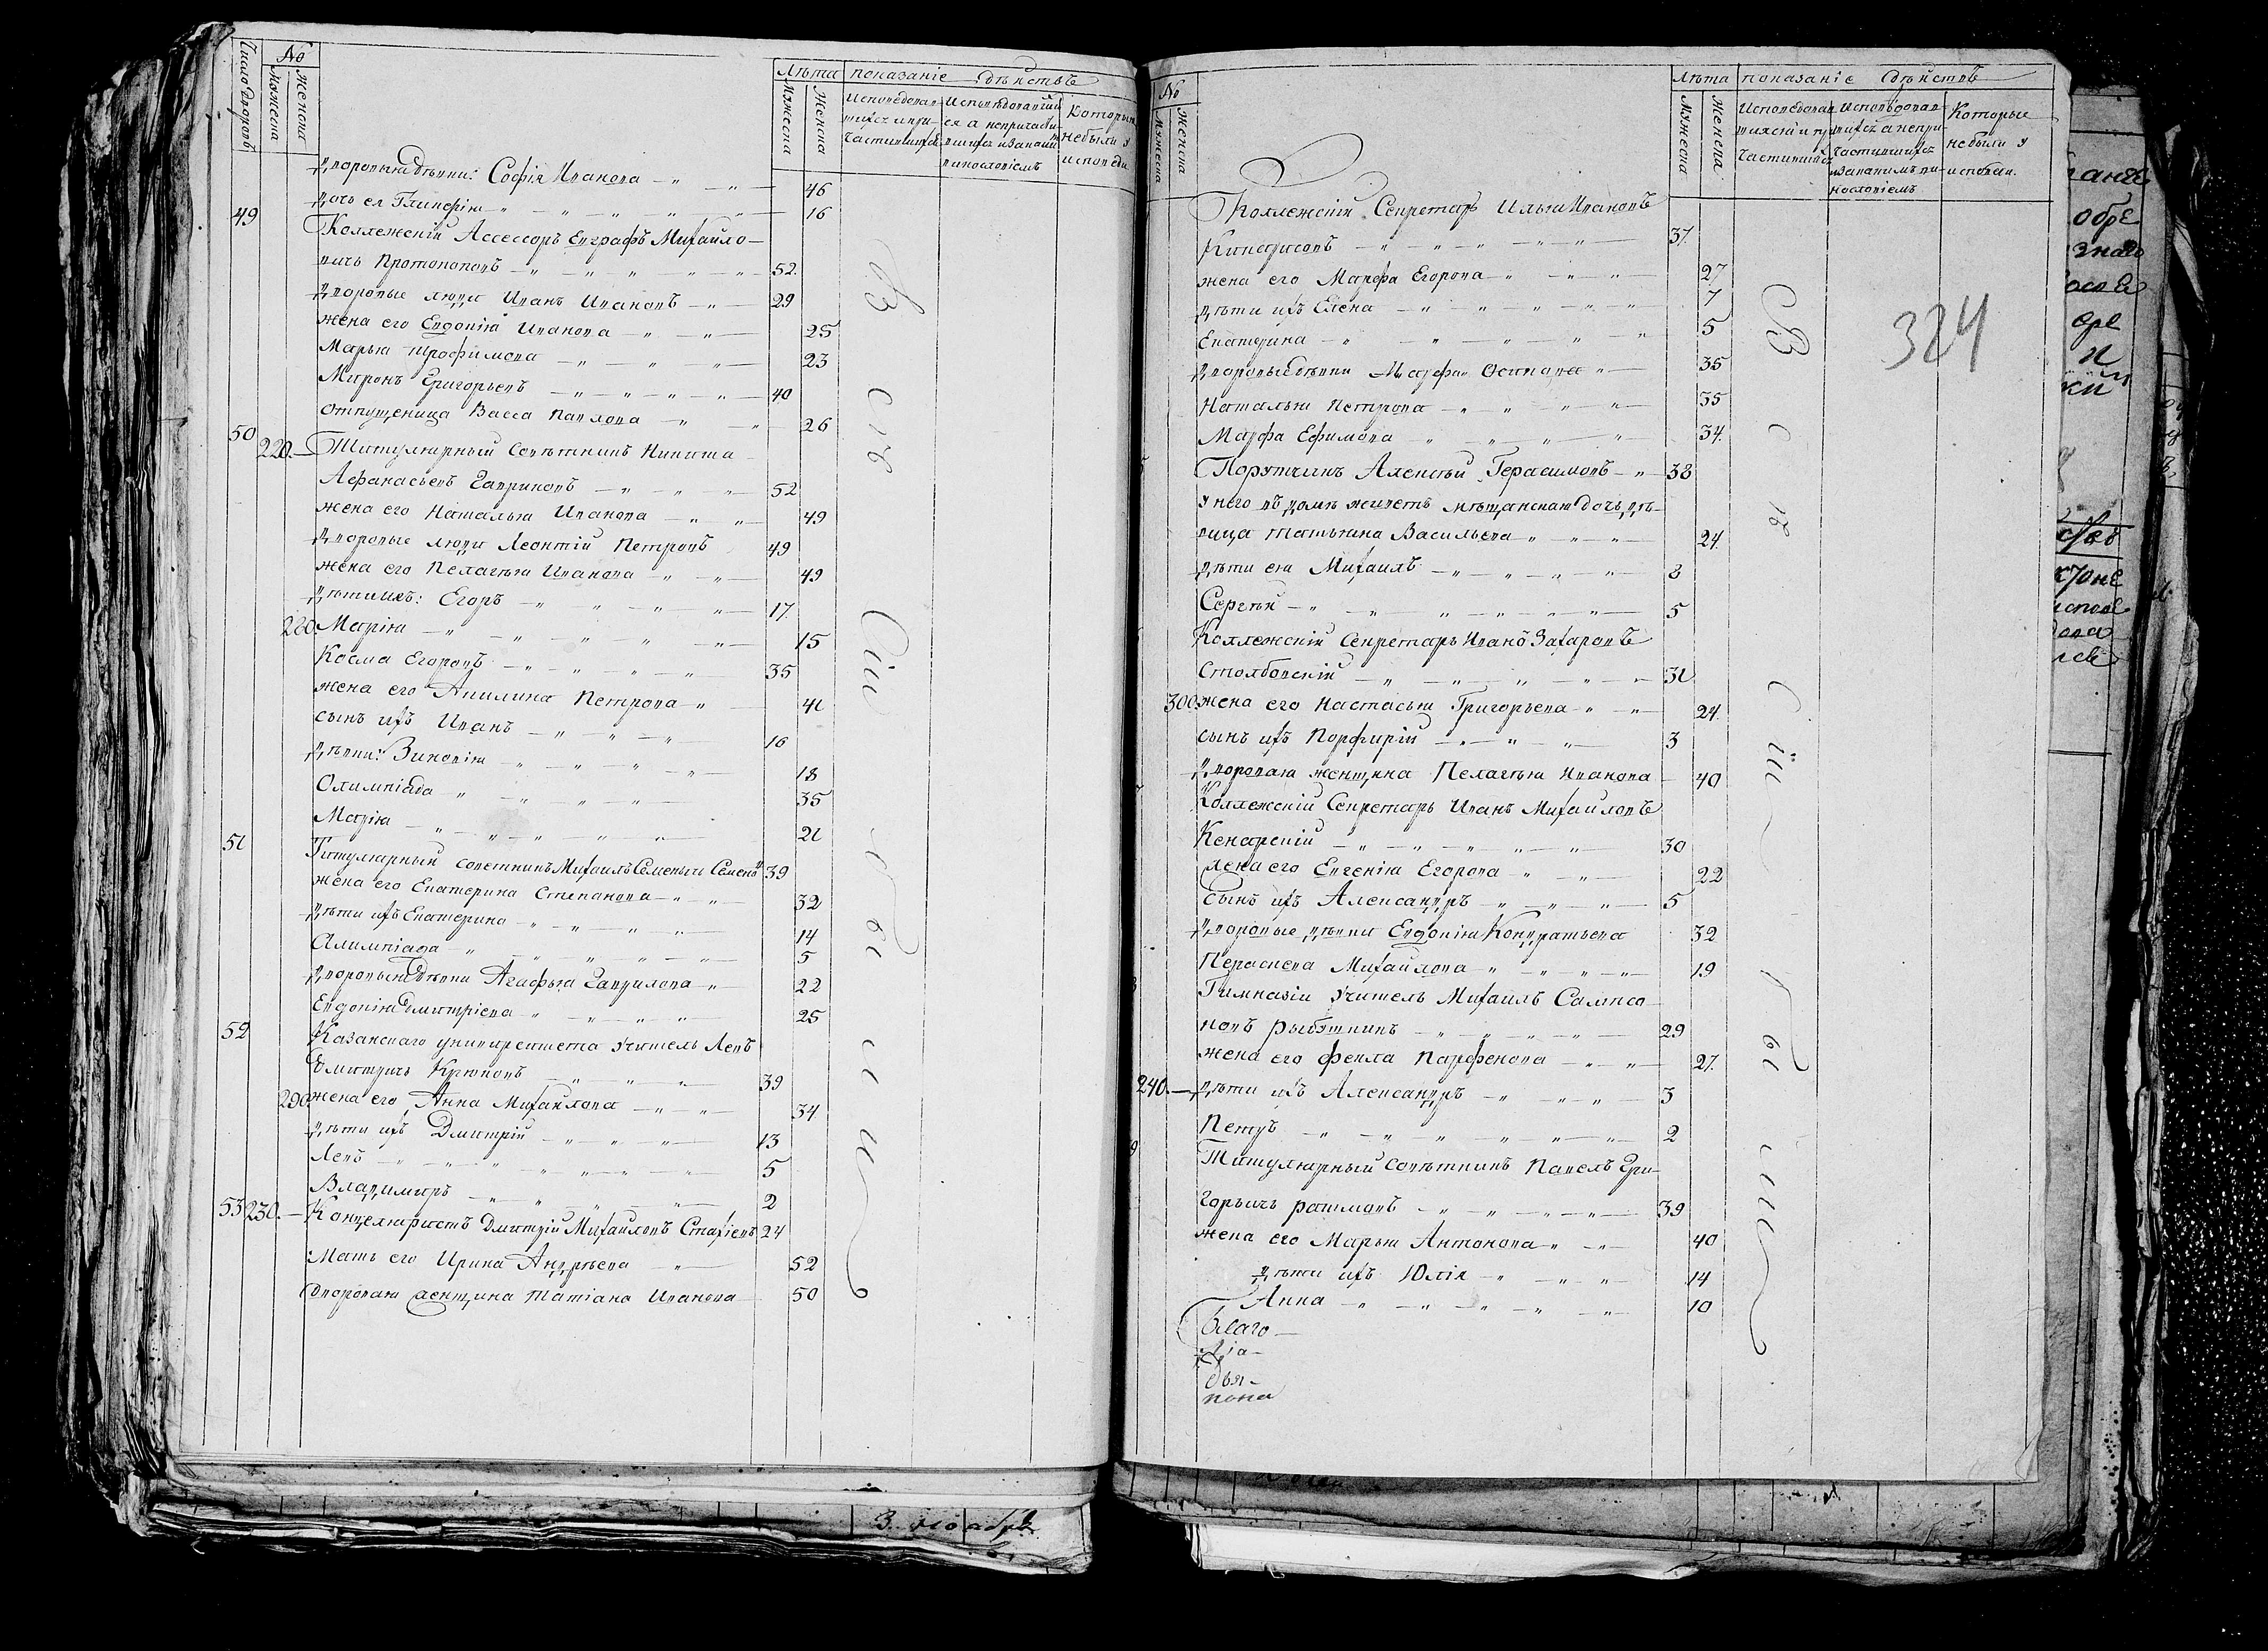 Число дворовъ
№
Мужеска
Женска
Лѣта показаніе дѣйствъ
Мужеска
Женска
Исповедавшихся и причастившихся
Исповѣдавшихся а непричастившихся
Которые небыли у исповеди
дворовыя дѣвки: Софія Иванова 46
дочь ея Гликерія 16
49 Коллежскій Ассессоръ Евграфъ Михайло-
вичь Протопоповъ 52
дворовые люди Иванъ Ивановъ 29
жена его Евдокія Иванова 25
Марья Трофимова 23
Миронъ Григорьевъ 40
отпущеница Васса Павлова 26
50 220. Титулярный Совѣтникъ Никита
Афанасьевъ Гавриковъ 52
жена его Наталья Иванова 49
дворовые люди Леонтій Петровъ 49
жена его Пелагѣя Иванова 49
дѣти ихъ: Егоръ 17
280. Марія 15
Косма Егоровъ 35
жена его Акилина Петрова 41
сынъ ихъ Иванъ 16
дѣвки: Зиновія 18
Олимпіада 35
Марія 21
51 Титулярный советникъ Михаилъ Семенычь Семено 39
жена его Екатерина Степанова 32
дѣти ихъ Екатерина 14
Алимпіада 5
дворовыя дѣвки Агафья Гаврилова 22
Евдокія Дмитріева 25
52 Казанскаго университета Учитель Левъ
Дмитричь Крюковъ 39
290. жена его Анна Михайлова 34
дѣти ихъ Дмитрій 13
Левъ 5
Владимиръ 2
53 230. Концеляристъ Дмитрій Михайловъ Стахіевъ 24
Мать его Ирина Андреева 52
дворовая женщина Татіана Иванова 50
3 ноабря
№
Мужеска
Женска
Лѣта показаніе дѣйствъ
Мужеска
Женска
Которые небыли у исповеди.
324
Коллежскій Секретарь Илья Ивановъ
37
жена его Марфа Егорова 27
дѣти ихъ Елена 7
Екатерина 5
дворовые дѣвки Марфа Осипова 35
Наталья Петрова 35
Марфа Ефимова 34.
Порутчикъ Алексѣй Герасимовъ 38
у него въ домѣ живетъ мѣщанская дочь дѣ-
вица Татьяна Васильева 24
дѣти ея Михаилъ 8
Сергѣй 5
Коллежскій Секретарь Иванъ Захаровъ
Столбовскій 31
300 жена его Настасья Григорьева 24
сынъ ихъ Порфирій 3
дворовая женщина Пелагѣя Иванова 40
Коллежскій Секретарь Иванъ Михайловъ
Кенарскій 30
жена его Евгенія Егорова 22
Сынъ ихъ Александръ 5
дворовые дѣвки Евдокія Кондратьева 32
Параскева Михайлова 19
Гимназіи Учитель Михаилъ Самсо-
новъ Рыбушкинъ 29
жена его Фекла Парфенова 27.
240. дѣти ихъ Александръ 3
Петръ 2
Титулярный совѣтникъ Павелъ Гри-
горьичь Ратмовъ 39
жена его Марья Антонова 40
дѣти ихъ Юлія 14
Анна 10
Благо-